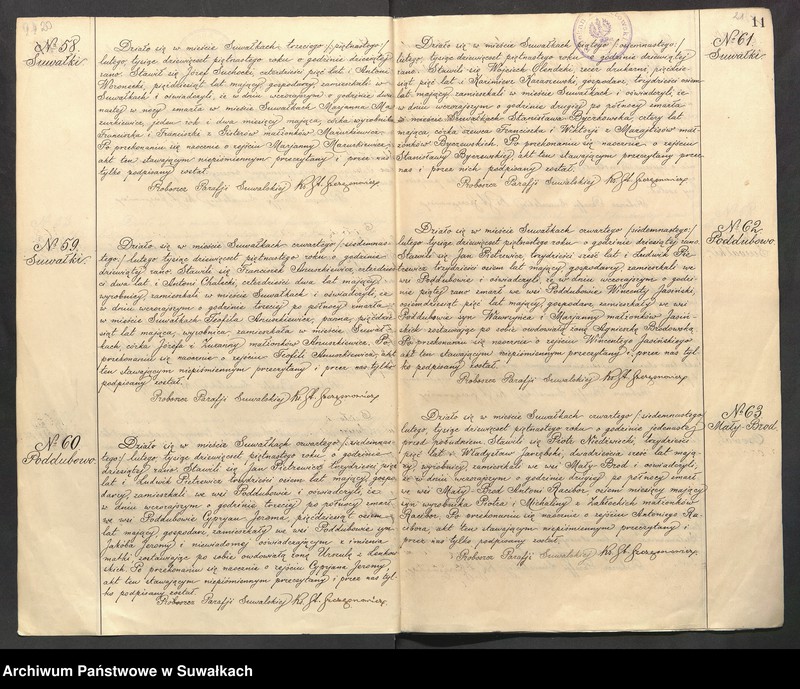 № 58
Suwałki
Działo się w mieście Suwałkach, trzeciego /piętnastego/
lutego, tysiąc dziewięćset piętnastego roku o godzinie dziesiątej
rano. Stawił się Józef Suchocki, czterdzieści pięć lat i Antoni
Woroniecki, pięćdziesiąt lat mający, gospodarzy, zamieszkali w
Suwałkach i oświadczyli, iż w dniu wczorajszym o godzinie dwu-
nastej w nocy zmarła w mieście Suwałkach Marjanna Ma-
zurkiewicz, jeden rok i dwa miesięcy mająca, córka wyrobnika
Franciszka i Franciszki z małżonków Mazurkiewicz.
Po przekonaniu się naocznie o zejściu Marjanny Mazurkiewicz,
akt ten stawającym niepiśmiennym przeczytany i przez nas
tylko podpisany został.
Proboszcz Parafji Suwalskiej Ks. St. Szczęsnowicz
№ 59
Suwałki
Działo się w mieście Suwałkach czwartego /siedemnas-
tego/ lutego tysiąc dziewięćset piętnastego roku o godzinie
dziewiątej rano. Stawili się Franciszek Anuszkiewicz, czterdzieś-
ci dwa lat i Antoni Chalecki, czterdzieści dwa lat mający,
wyrobnicy, zamieszkali w mieście Suwałkach i oświadczyli, iż
w dniu wczorajszym o godzinie trzeciej po północy zmarła
w mieście Suwałkach Teofila Anuszkiewicz, panna, pięćdzie-
siąt lat mająca, wyrobnica, zamieszkała w mieście Suwał-
kach, córka Józefa i Zuzanny małżonków Anuszkiewicz. Po
przekonaniu się naocznie o zejściu Teofili Anuszkiewicz, akt
ten stawającym niepiśmiennym przeczytany i przez nas tylko
podpisany został.
Proboszcz Parafji Suwalskiej Ks. St. Szczęsnowicz
№ 60
Poddubowo.
Działo się w mieście Suwałkach czwartego /siedemnas-
tego/ lutego, tysiąc dziewięćset piętnastego roku o godzinie
dziesiątej rano. Stawili się Jan Pietrewicz trzydzieści sześć
lat i Ludwik Pietrewicz trzydzieści osiem lat mający gospo-
darzy, zamieszkali we wsi Poddubowie i oświadczyli, iż
w dniu wczorajszym o godzinie trzeciej po północy zmarł
we wsi Poddubowie Cypryan Jeroma, pięćdziesiąt osiem
lat mający, gospodarz, zamieszkały we wsi Poddubowie syn
Jakóba Jeromy i niewiadomej oświadczającym z imienia
matki, zostawując po sobie owdowiałą żonę Urszulę z
Po przekonaniu się naocznie o zejściu Cypryana Jeromy,
akt ten stawającym niepiśmiennym przeczytany i przez nas tyl-
ko podpisany został.
Proboszcz Parafji Suwalskiej Ks. St. Szczęsnowicz
11
№ 61
Suwałki
Działo się w mieście Suwałkach piątego /osiemnastego/
lutego, tysiąc dziewięćset piętnastego roku o godzinie dziewiątej
rano. Stawili się Wojciech Glendzki, zecer drukarni, pięćdzie-
siąt pięć lat i Kazimierz Karaszewski, gospodarz, trzydzieści osiem
lat, mający, zamieszkali w mieście Suwałkach i oświadczyli, iż
w dniu wczorajszym o godzinie drugiej po północy zmarła
w mieście Suwałkach Stanisława Byczkowska, cztery lat
mająca, córka szewca Franciszka i Wiktorji z mał-
żonków Byczewskich. Po przekonaniu się naocznie o zejściu
Stanisławy Byczewskiej, akt ten stawającym przeczytany przez
nas i przez nich podpisany został.
Proboszcz Parafji Suwalskiej Ks. St. Szczęsnowicz
№ 62
Poddubowo.
Działo się w mieście Suwałkach czwartego /siedemnastego/
lutego tysiąc dziewięćset piętnastego roku o godzinie dziesiątej rano.
Stawili się Jan Pietrewicz, trzydzieści sześć lat i Ludwik Pie-
trewicz trzydzieści osiem lat mający, gospodarzy, zamieszkali we
wsi Poddubowie i oświadczyli, iż w dniu wczorajszym o godzi-
nie piątej rano zmarł we wsi Poddubowie Wincenty Jasiński,
osiemdziesiąt pięć lat mający, gospodarz zamieszkały we wsi
Poddubowie syn Wawrzyńca i Marjanny małżonków Jasiń-
skich zostawując po sobie owdowiałą żonę Agnieszkę Brodowską.
Po przekonaniu się naocznie o zejściu Wincentego Jasińskiego
akt ten stawającym niepiśmiennym przeczytany i przez nas tyl-
ko podpisany został.
Proboszcz Parafji Suwalskiej Ks. St. Szczęsnowicz
№ 63
Mały-Brod.
Działo się w mieście Suwałkach czwartego /siedemnastego/
lutego, tysiąc dziewięćset piętnastego roku o godzinie jedenastej
przed południem. Stawili się Piotr Niedźwiecki, trzydzieści
pięć lat i Władysław Jarzębski, dwadzieścia sześć lat mają-
cy, wyrobnicy, zamieszkali we wsi Mały-Brod i oświadczyli,
iż w dniu wczorajszym o godzinie drugiej po północy zmarł
we wsi Mały-Brod Antoni Racibor osiem miesięcy mający
syn wyrobnika Piotra i Michaliny z małżonków
Racibor. Po przekonaniu się naocznie o zejściu Antoniego Ra-
cibora, akt ten stawającym niepiśmiennym przeczytany i
przez nas tylko podpisany został.
Proboszcz Parafji Suwalskiej Ks. St. Szczęsnowicz
Archiwum Państwowe w Suwałkach